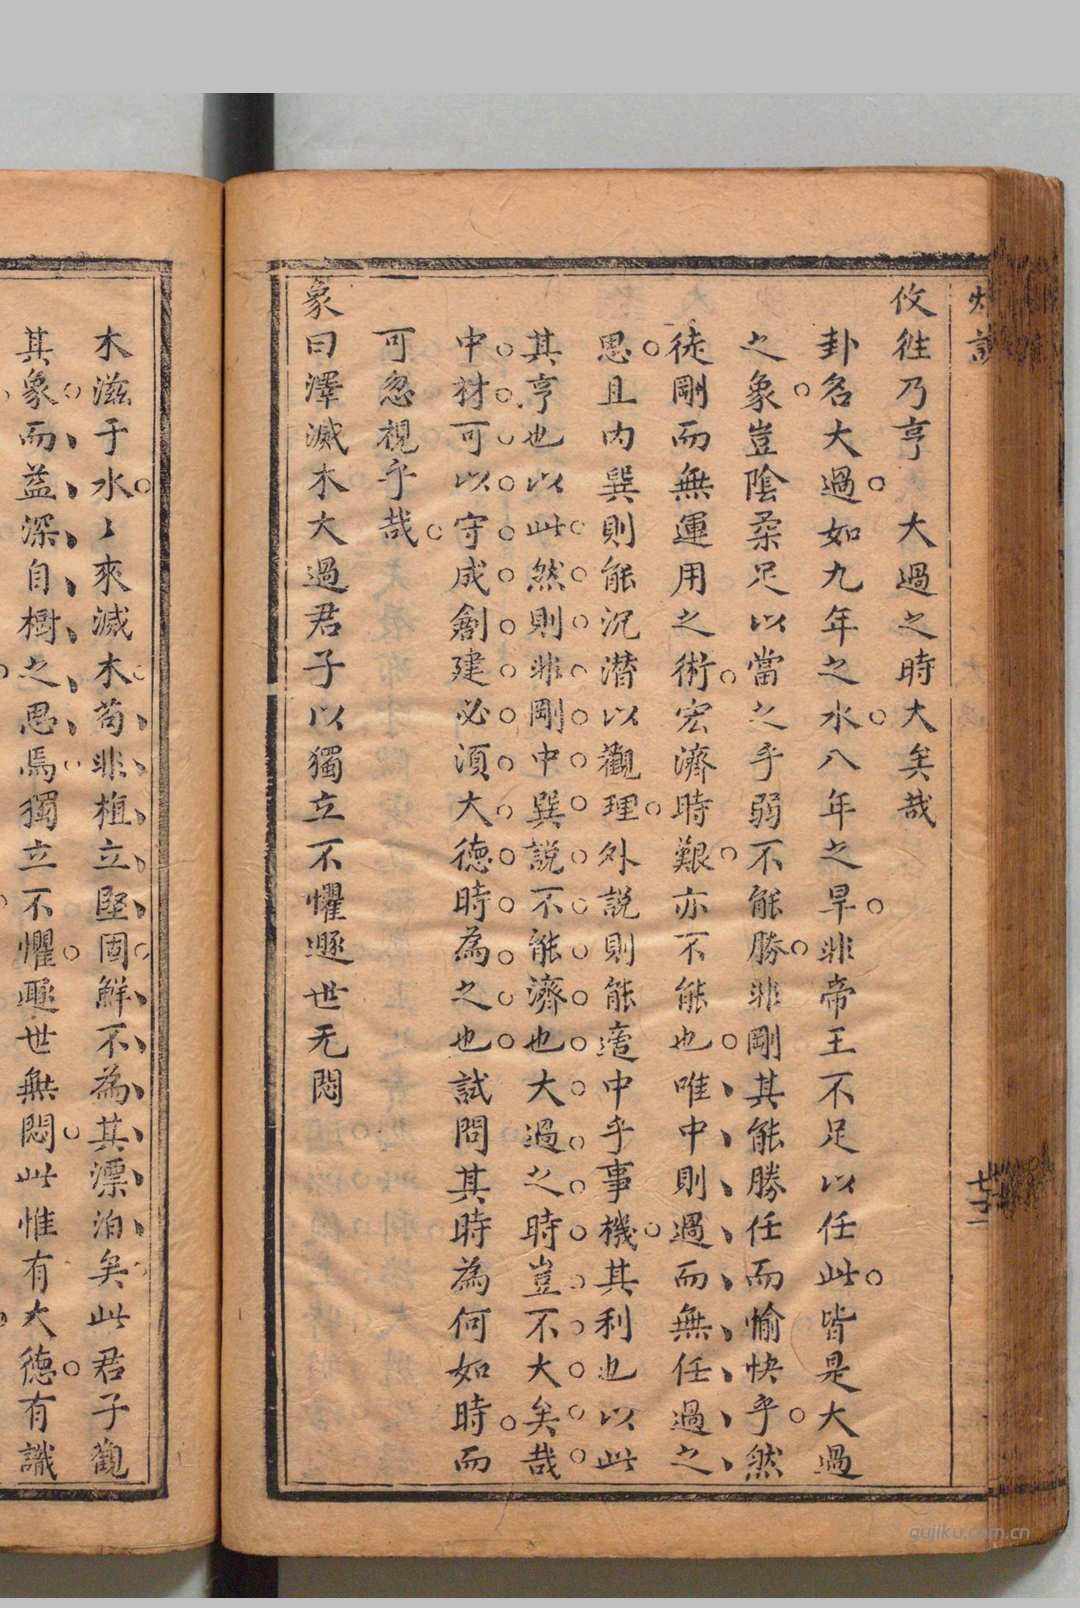 攸徃乃亨大過之時大矣哉
卦名大過如九年之水八年之旱非帝王不足以任此皆是大過
之象豈陰柔足以當之乎弱不能勝非剛其能勝任而愉快乎然
徒剛而無運用之術宏濟時艱亦不能也唯中則過而無任過之
思且內巽則能沉潛以觀理外說則能適中乎事機其利也以此
其亨也以此然則非剛中巽說不能濟也大過之時豈不大矣哉
中材可以守成創建必須大德時為之也試問其時為何如時而
可忽視乎哉
象曰澤滅木大過君子以獨立不懼遯世无悶
木滋于水〻來滅木苟非植立堅固鮮不為其漂泊矣此君子觀
其象而益深自樹之思焉獨立不懼遯世無悶此惟有大德有識
gujiku.com.cn